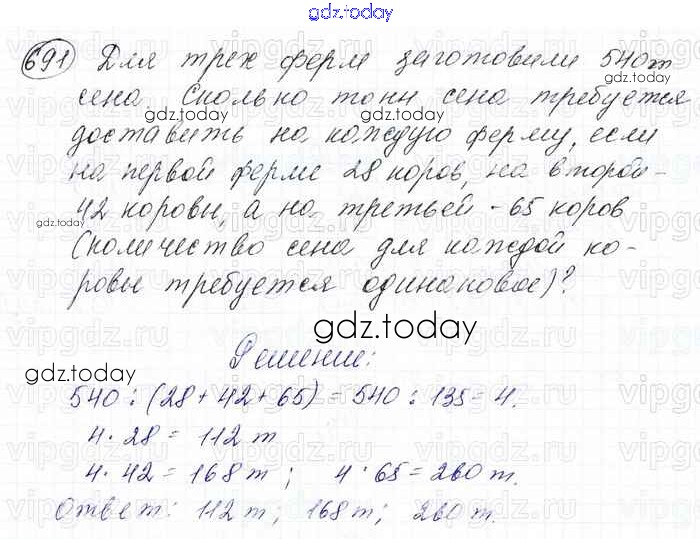 gdz.today
691 Для трех ферм заготовили 540 т
сена. Сколько тонн сена требуется
доставить на каждую ферму, если
на первой ферме 28 коров, на второй -
42 коровы, а на третьей - 65 коров
(количество сена для каждой ко-
ровы требуется одинаковое)?
gdz.today
Решение:
540 : (28 + 42 + 65) = 540 : 135 = 4.
4 · 28 = 112 т
4 · 42 = 168 т ; 4 · 65 = 260 т.
Ответ: 112 т; 168 т; 260 т.